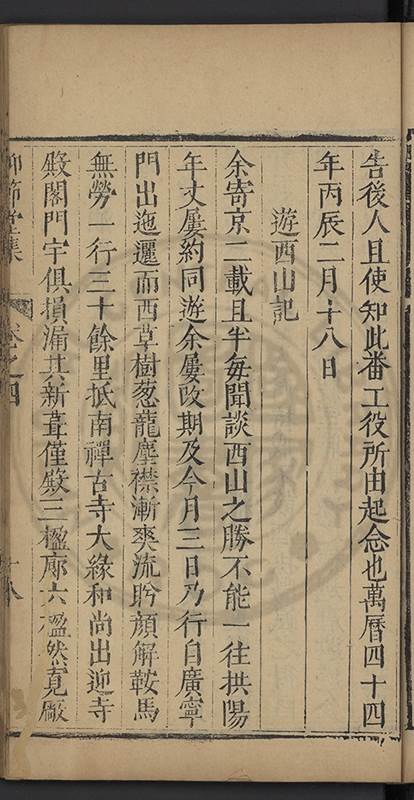 告後人且使知此番工役所由起念也萬曆四十四
年丙辰二月十八日
遊西山記
余寄京二載且半每聞談西山之勝不能一往拱陽
年丈屢約同遊余屢改期及今月三日乃行自廣寧
門出迤邐而西草樹葱蘢塵襟漸爽流盻顏解鞍馬
無勞一行三十餘里抵南禪古寺大緣和尚出迎寺
殿閣門宇俱損漏其新葺僅殿三楹廊六楹然寬厰
仰節堂集 卷之四